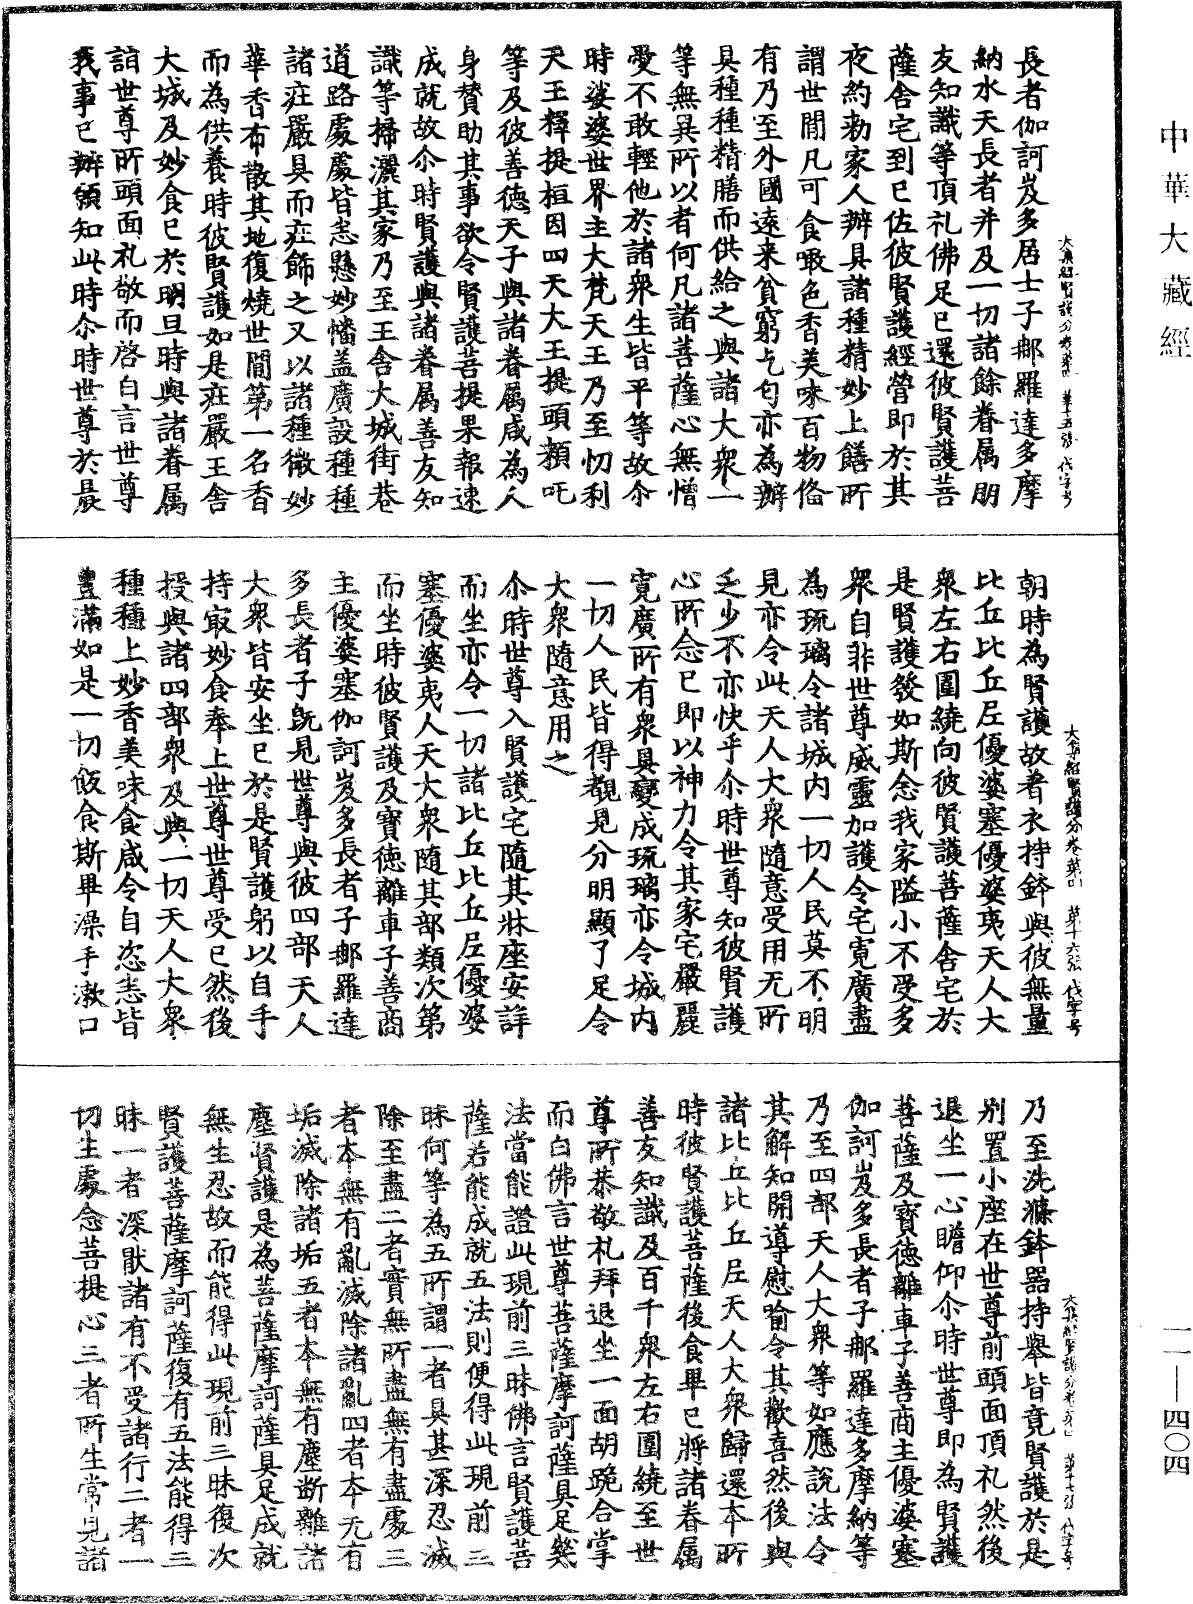 中華大藏經
大集經賢護分卷第四 第十五張 伐字号
長者伽訶岌多居士子郍羅達多摩
納水天長者并及一切諸餘眷属朋
友知識等頂礼佛足已還彼賢護菩
薩舍宅到已佐彼賢護經營即於其
夜約勑家人辦具諸種精妙上饍所
謂世間凡可食噉色香美味百物俻
有乃至外國遠來貧窮乞匃亦為辦
具種種精膳而供給之與諸大衆一
等無異所以者何凡諸菩薩心無憎
愛不敢輕他於諸衆生皆平等故尒
時娑婆世界主大梵天王乃至忉利
天王釋提桓因四天大王提頭頼吒
等及彼善德天子與諸眷属咸為人
身賛助其事欲令賢護菩提果報速
成就故尒時賢護與諸眷属善友知
識等掃灑其家乃至王舍大城街巷
道路處處皆悉懸妙幡盖廣設種種
諸莊嚴具而莊飾之又以諸種微妙
華香布散其地復燒世間第一名香
而為供養時彼賢護如是莊嚴王舍
大城及妙食已於明旦時與諸眷属
詣世尊所頭面礼敬而啓白言世尊
我事已辦願知此時尒時世尊於晨
大集經賢護分卷第四 第十六張 伐字号
朝時為賢護故著衣持鉢與彼無量
比丘比丘尼優婆塞優婆夷天人大
衆左右圍繞向彼賢護菩薩舍宅於
是賢護發如斯念我家隘小不受多
衆自非世尊威靈加護令宅寬廣盡
為琉璃令諸城内一切人民莫不明
見亦令此天人大衆隨意受用无所
乏少不亦快乎尒時世尊知彼賢護
心所念已即以神力令其家宅嚴麗
寬廣所有衆具變成琉璃亦令城内
一切人民皆得覩見分明顯了足令
大衆隨意用之
尒時世尊入賢護宅隨其牀座安詳
而坐亦令一切諸比丘比丘尼優婆
塞優婆夷人天大衆隨其部類次第
而坐時彼賢護及寶德離車子善商
主優婆塞伽訶岌多長者子郍羅達
多長者子旣見世尊與彼四部天人
大衆皆安坐已於是賢護躬以自手
持㝡妙食奉上世尊世尊受已然後
授與諸四部衆及與一切天人大衆
種種上妙香美味食咸令自恣悉皆
豐滿如是一切飯食斯畢澡手漱口
大集經賢護分卷第四 第十七張 伐字号
乃至洗滌鉢器持舉皆竟賢護於是
别置小座在世尊前頭面頂礼然後
退坐一心瞻仰尒時世尊即為賢護
菩薩及寶德離車子善商主優婆塞
伽訶岌多長者子郍羅達多摩納等
乃至四部天人大衆等如應說法令
其解知開導慰喻令其歡喜然後與
諸比丘比丘尼天人大衆歸還本所
時彼賢護菩薩後食畢已將諸眷属
善友知識及百千衆左右圍繞至世
尊所恭敬礼拜退坐一面胡跪合掌
而白佛言世尊菩薩摩訶薩具足幾
法當能證此現前三昧佛言賢護菩
薩若能成就五法則便得此現前三
昧何等為五所謂一者具甚深忍滅
除至盡二者實無所盡無有盡處三
者本無有亂滅除諸亂四者本无有
垢滅除諸垢五者本無有塵斷離諸
塵賢護是為菩薩摩訶薩具足成就
無生忍故而能得此現前三昧復次
賢護菩薩摩訶薩復有五法能得三
昧一者深猒諸有不受諸行二者一
切生處念菩提心三者所生常見諸
一一—四〇四